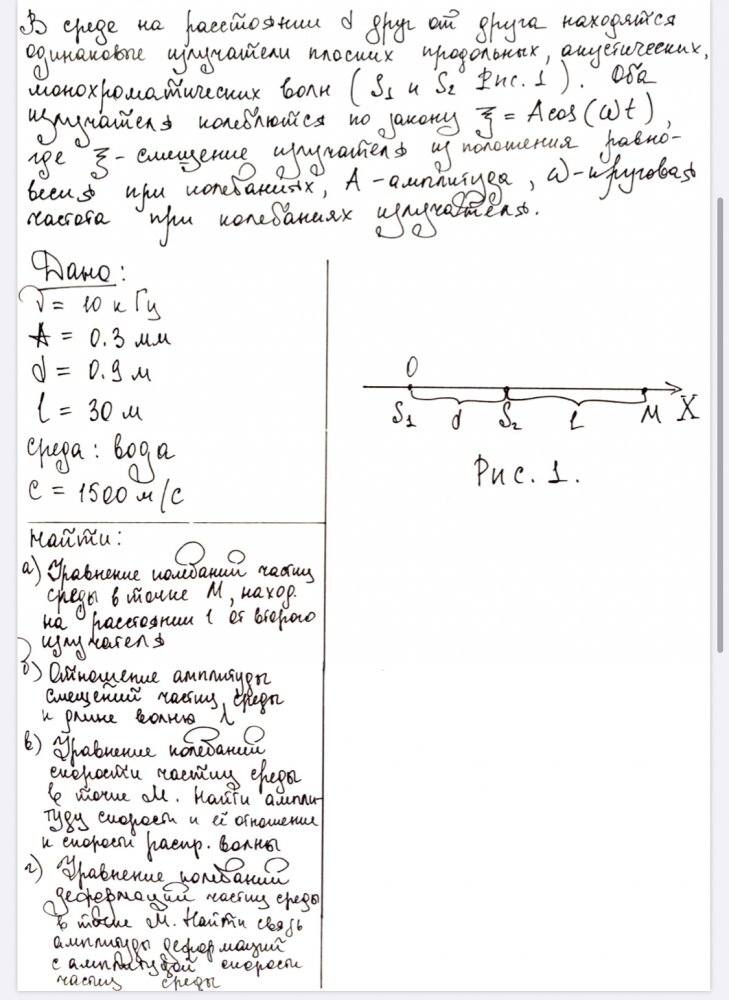 В среде на расстоянии d друг от друга находятся
одинаковые излучатели плоских продольных, акустических,
монохроматических волн (S₁ и S₂ Рис. 1). Оба
излучателя колеблются по закону ξ = A cos(ωt),
где ξ - смещение излучателя из положения равно-
весия при колебаниях, A - амплитуда, ω - круговая
частота при колебаниях излучателя.
Дано:
ν = 10 кГц
A = 0.3 мм
d = 0.9 м
l = 30 м
среда: вода
c = 1500 м/с
O
S₁ d S₂ l M X
Рис. 1.
Найти:
а) Уравнение колебаний частиц
среды в точке M, наход.
на расстоянии l от второго
излучателя
б) Отношение амплитуды
смещений частиц среды
к длине волны λ
в) Уравнение колебаний
скорости частиц среды
в точке M. Найти ампли-
туду скорости и её отношение
к скорости распр. волны
г) Уравнение колебаний
деформаций частиц среды
в точке M. Найти связь
амплитуды деформаций
с амплитудой скорости
частиц среды